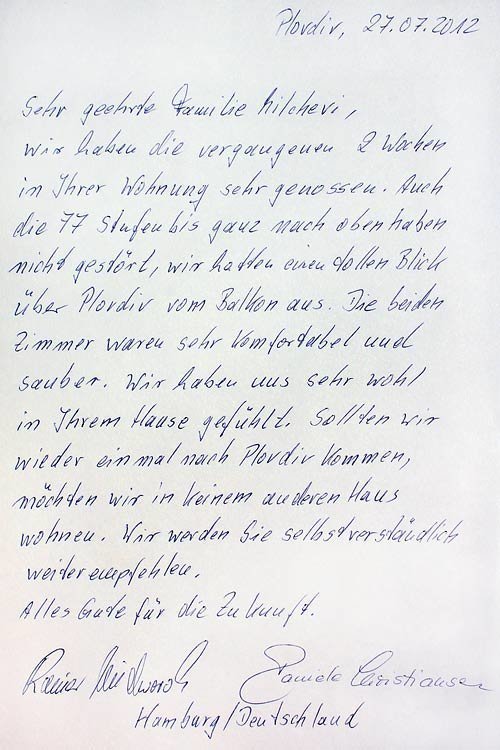 Plovdiv, 27.07.2012
Sehr geehrte Familie Milchevi,
wir haben die vergangenen 2 Wochen
in Ihrer Wohnung sehr genossen. Auch
die 77 Stufen bis ganz nach oben haben
nicht gestört, wir hatten einen tollen Blick
über Plovdiv vom Balkon aus. Die beiden
Zimmer waren sehr komfortabel und
sauber. Wir haben uns sehr wohl
in Ihrem Hause gefühlt. Sollten wir
wieder einmal nach Plovdiv kommen,
möchten wir in keinem anderen Haus
wohnen. Wir werden Sie selbstverständlich
weiterempfehlen.
Alles Gute für die Zukunft.
Rainer Daniela Christiansen
Hamburg/Deutschland